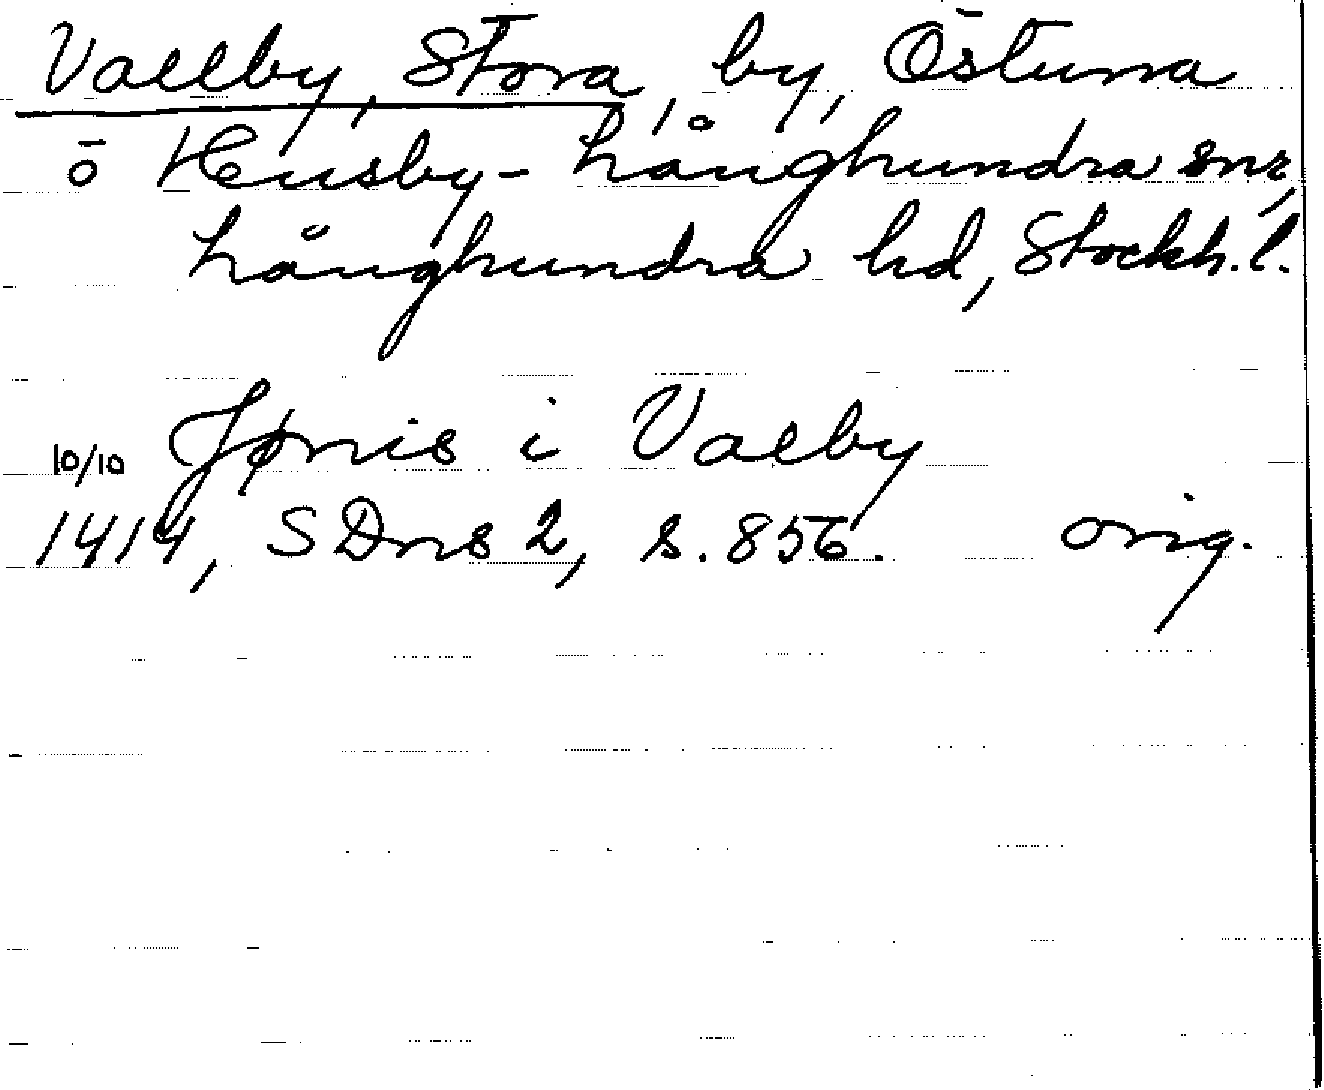 Vallby, Stora, by, Östuna
o Husby-Långhundra snr,
Långhundra hd, Stockh. l.
10/10 Jønis i Valby
1414, SDns 2, s. 856. orig.